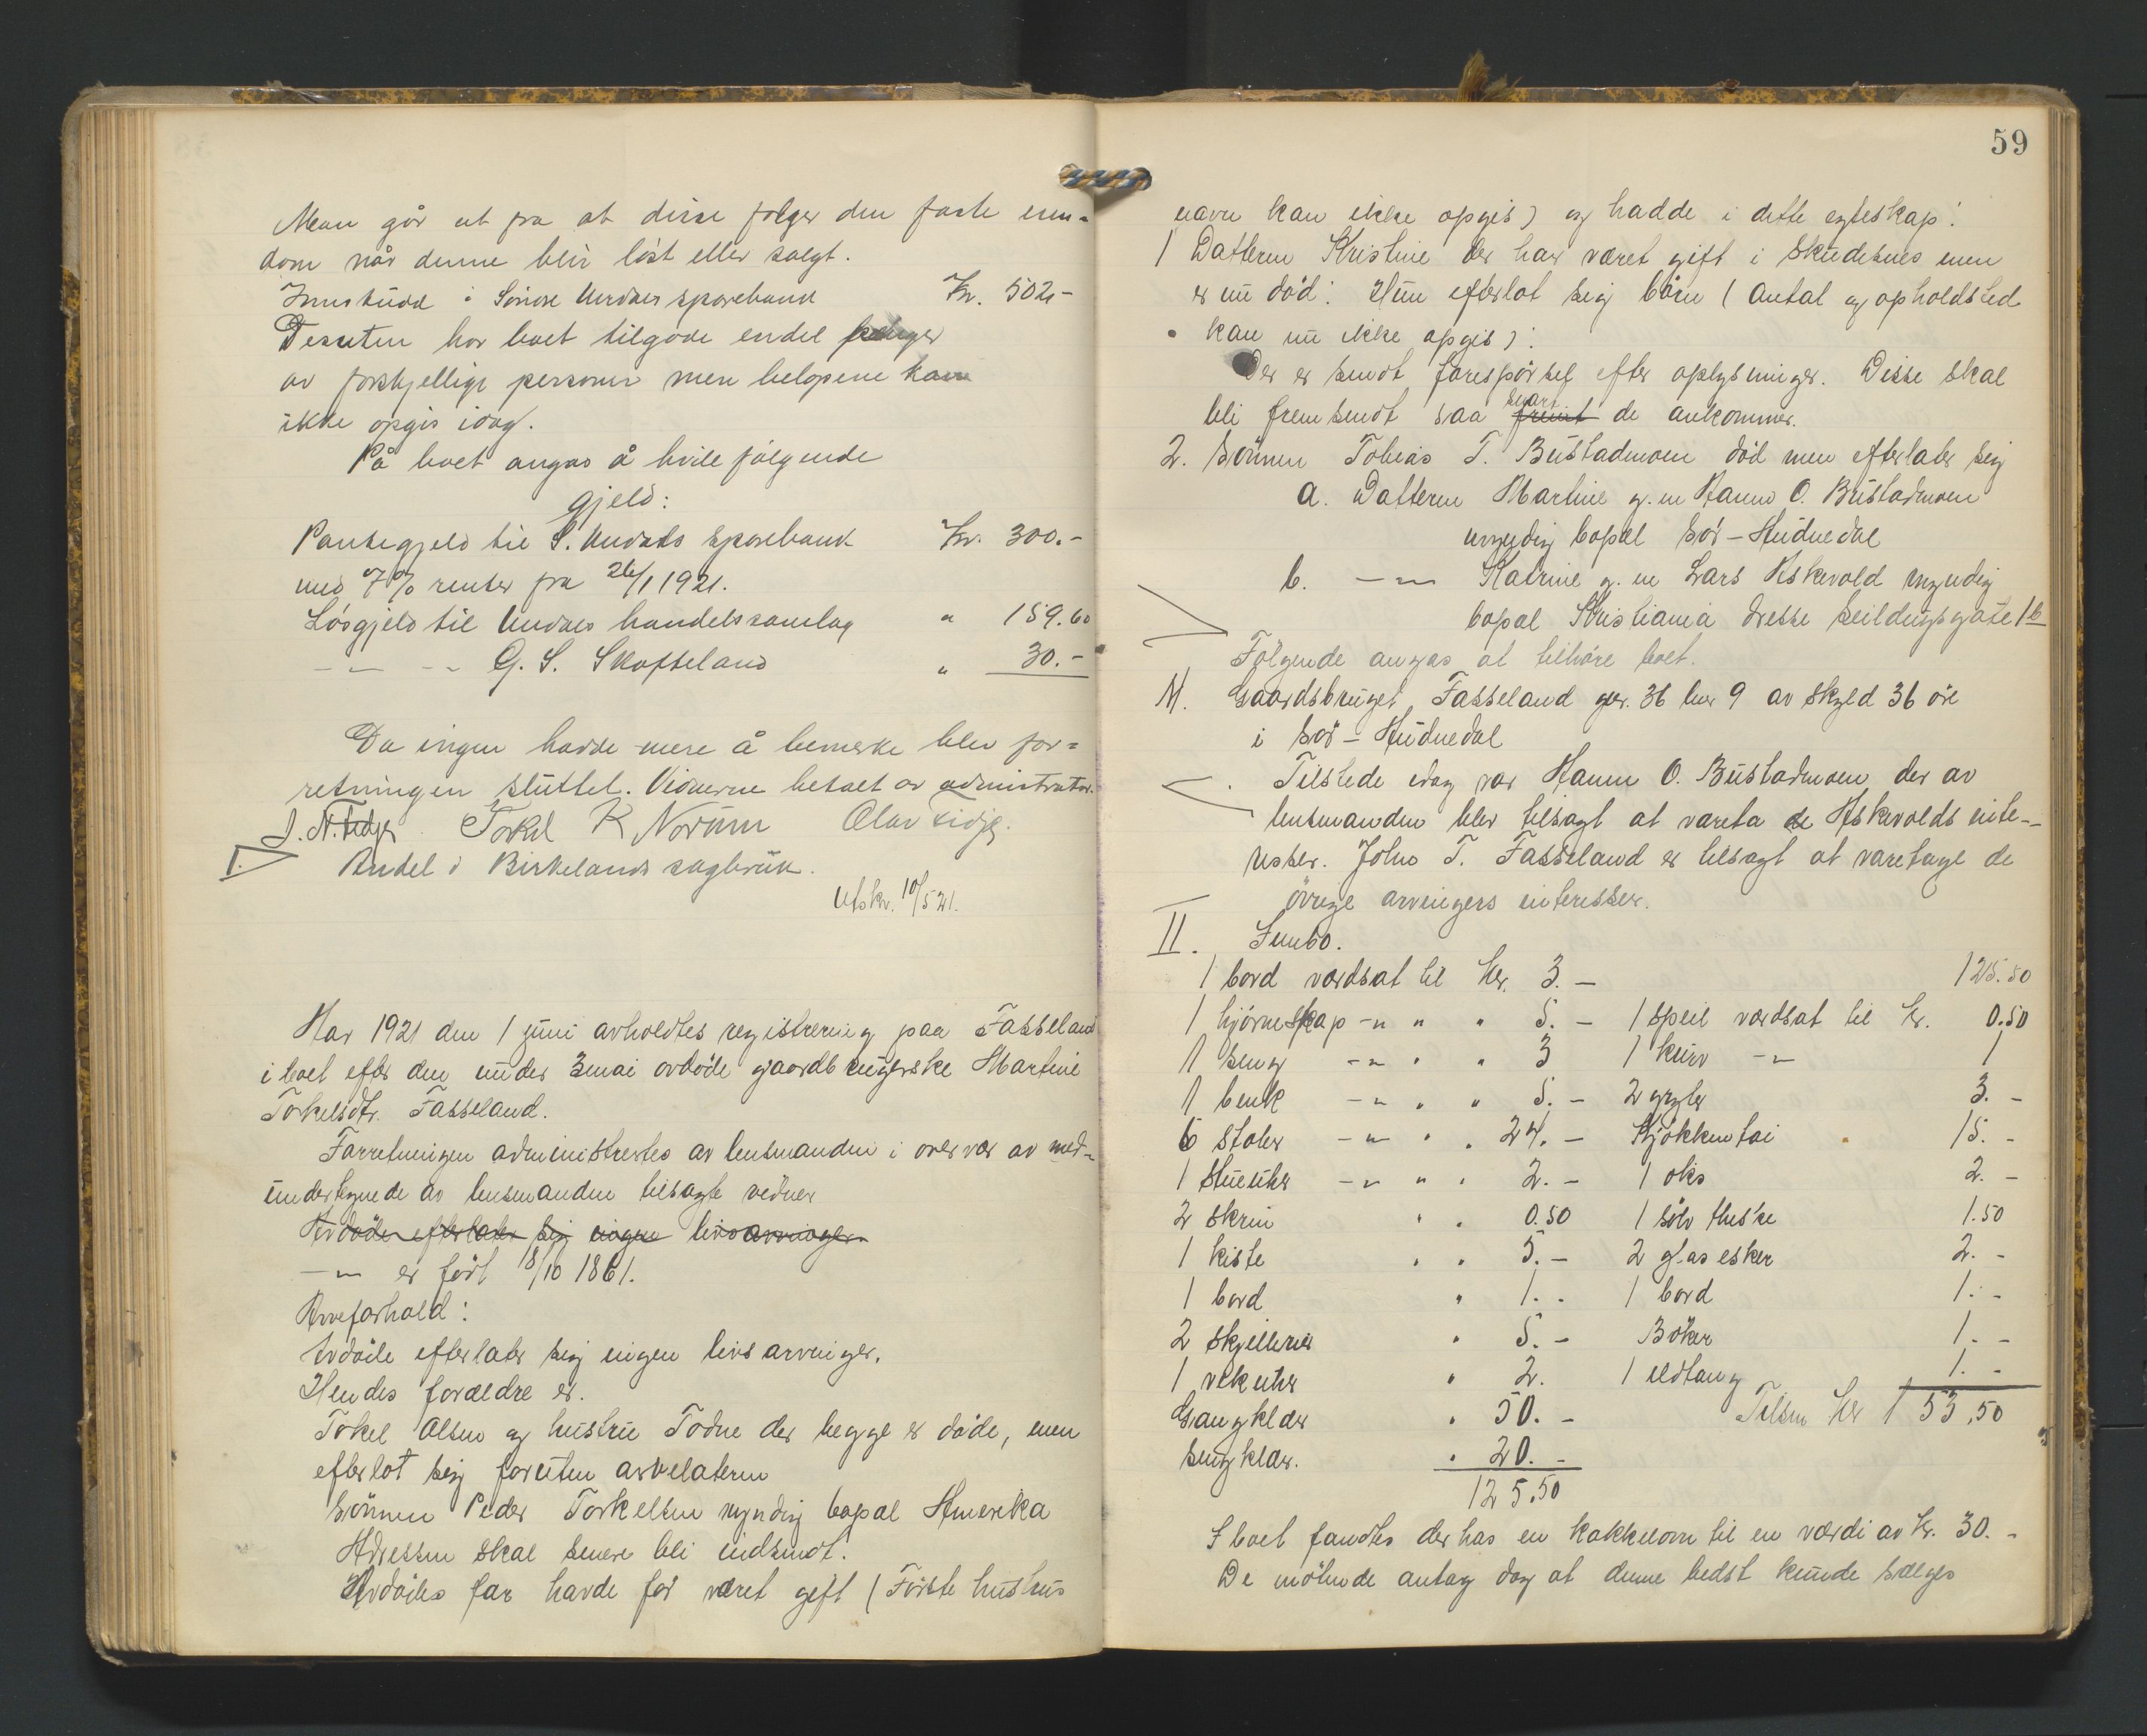 Man går ut fra at disse følger den faste eien-
dom når denne blir løst eller solgt.
Innskudd i Søndre Undals sparebank Kr. 502.-
Desuten har boet tilgode endel penger
av forskjellige personer men beløpene kan
ikke opgis idag.
På boet angas å hvile følgende
gjeld:
Pantegjeld til S. Undals sparebank Kr. 300.-
med 7 % renter fra 26/1 1921.
Løsgjeld til Undals handelssamlag " 159.60
-"- -"- G. S. Skofteland " 30.-
Da ingen hadde mere å bemerke blev for-
retningen sluttet. Vidnerne betalt av administrator.
J. N. Fidje Torkel K Norum Olav Fidje.
1. Andel i Birkelands sagbruk.
Utskr. 10/5 21.
Aar 1921 den 1 juni avholdtes registrering paa Fasseland
i boet efter den under 3 mai avdøde gaardbrugerske Martine
Torkelsdtr. Fasseland.
Forretningen administrertes av lensmanden i overvær av med-
undertegnede av lensmanden tilsagte vidner
Avdøde efterlater sig ingen livsarvinger
-"- er født 18/10 1861.
Arveforhold:
Avdøde efterlater sig ingen livsarvinger.
Hendes forældre er.
Tokel Olsen og hustru Todne der begge er døde, men
efterlot sig foruten arvelateren
Sønnen Peder Torkelsen myndig bopæl Amerika
Adressen skal senere bli indsendt.
Avdødes far havde før været gift (Første hustrus
59
navn kan ikke opgis) og hadde i dette egteskap:
1 Datteren Kristine der har været gift i Skudesnes men
er nu død. Hun efterlot sig børn (Antal og opholdsted
kan nu ikke opgis).
Der er sendt forespørsel efter oplysninger. Disse skal
bli fremsendt saa snart fremt de ankommer.
2. Sønnen Tobias T. Bustadmoen død men efterlater sig
a. Datteren Martine g. m Hann O. Bustadmoen
myndig bopæl Sør-Audnedal
b. -"- Katrine g. m Lars Askevold myndig
bopæl Kristiania dresse Seildugsgate 1b
Følgende angas at tilhøre boet.
Gaardsbruget Fasseland gnr. 36 bnr 9 av skyld 36 øre
i Sør-Audnedal
Tilstede idag var Hann O. Bustadmoen der av
lensmanden blev tilsagt at vareta de Askevolds inte-
resser. John T. Fasseland er tilsagt at varetage de
øvrige arvingers interesser.
II. Innbo.
1 bord værdsat til kr. 3.- 125.50
1 hjørneskap -" " " 5.- 1 speil værdsat til kr. 0.50
1 seng -" " " 3 1 kurv -"- 1
1 benk -" " " 5.- 2 gryter 3.-
6 stoler -" " " 24.- Kjøkkentøi 15.-
1 stueuhr -" " " 2.- 1 øks 2.-
2 skrin " " 0.50 1 sølv theske 1.50
1 kiste " " 5.- 2 glas esker 2.-
1 bord " 1.- 1 bord 1.-
2 skjellerier " 5.- Bøker 1.-
1 vekuhr " 2. 1 ildtang 1.-
Gangklær " 50.- Tilsm kr 153.50
Sengklær. " 20.-
125.50
I boet fandtes der hos en kakkelovn til en værdi av kr. 30.-
De møtende antog dog at denne bedst kunde sælges